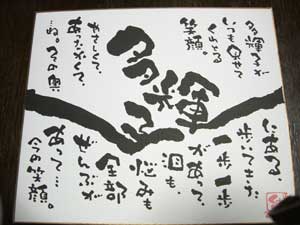 多輝子
多輝子が
いつも見せて
くれとる
笑顔。
やさしくて、
あったかくて
…ね。その奥
にある、
歩いてきた
一歩一歩
があって、
涙も、
悩みも
全部
ぜんぶが
あって…
今の笑顔。